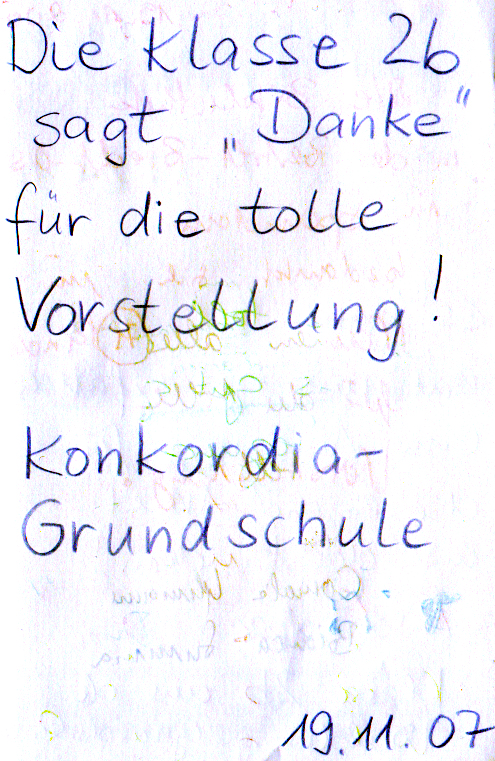 Die Klasse 2b
sagt „Danke“
für die tolle
Vorstellung!
Konkordia-
Grundschule
19.11.07